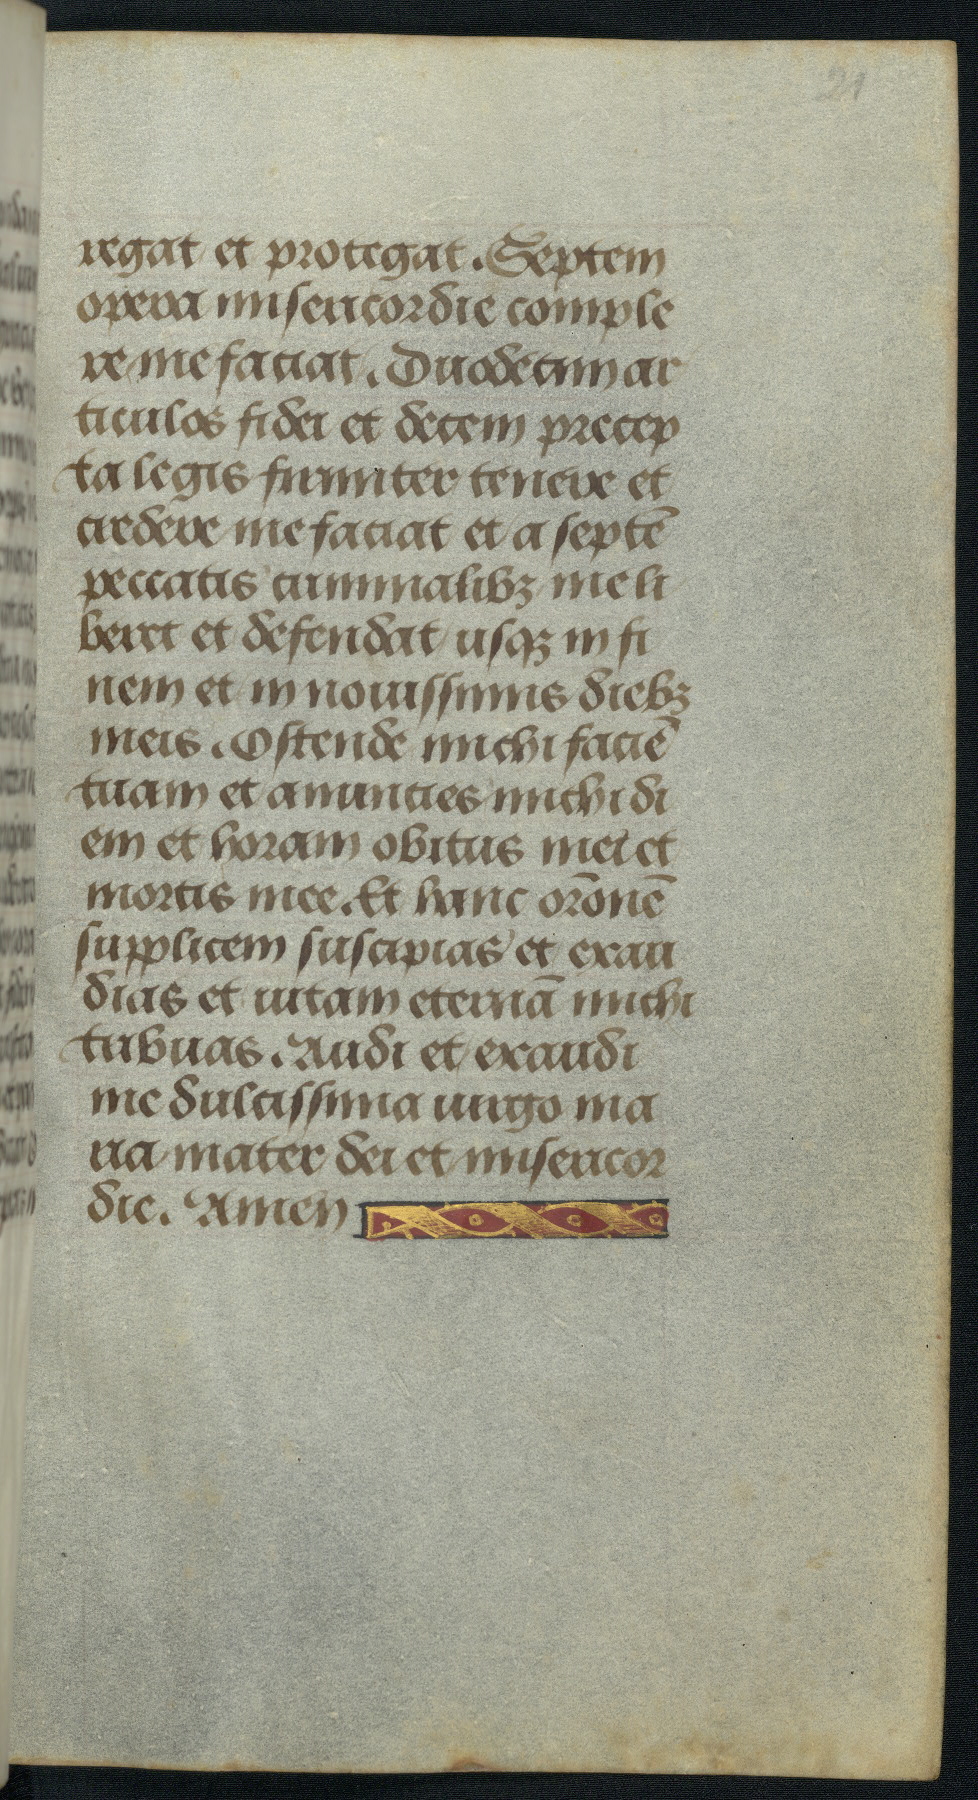 21
regat et protegat. Septem
opera misericordie comple
re me faciat. Duodecim ar
ticulos fidei et decem precep
ta legis firmiter tenere et
credere me faciat et a septē
peccatis criminalibꝫ me li
beret et defendat usqꝫ in fi
nem et in nouissimis diebꝫ
meis. Ostende michi faciē
tuam et anuncies michi di
em et horam obitus mei et
mortis mee. Et hanc or̄onē
supplicem suscipias et exau
dias et uitam eternā michi
tribuas. Audi et exaudi
me dulcissima uirgo ma
ria mater dei et misericor
die. Amen